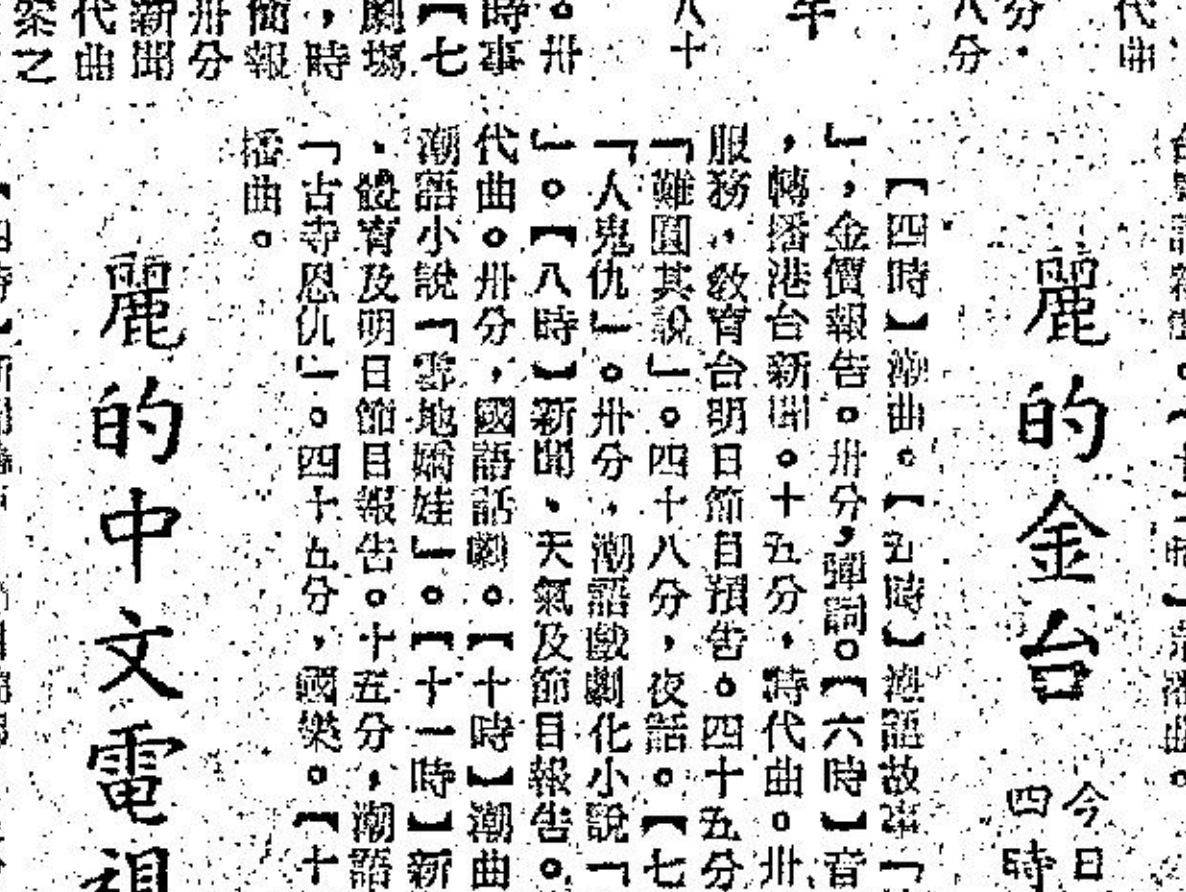 代曲
分・
八分
八十
。卅
時事
【七
劇塲
，時
簡報
卅分
新聞
代曲
案之
麗的金台
今日
四時
【四時】潮曲。【五時】潮語故事「
」，金價報告。卅分，彈詞。【六時】音
，轉播港台新聞。十五分，時代曲。卅
服務，敎育台明日節目預告。四十五分
「難圓其說」。四十八分，夜話。【七
「人鬼仇」。卅分，潮語戲劇化小說「
」。【八時】新聞、天氣及節目報告。
代曲。卅分，國語話劇。【十時】潮曲
潮語小說「雲地嬌娃」。【十一時】新
、體育及明日節目報告。十五分，潮語
「古寺恩仇」。四十五分，國樂。【十
播曲。
麗的中文電視